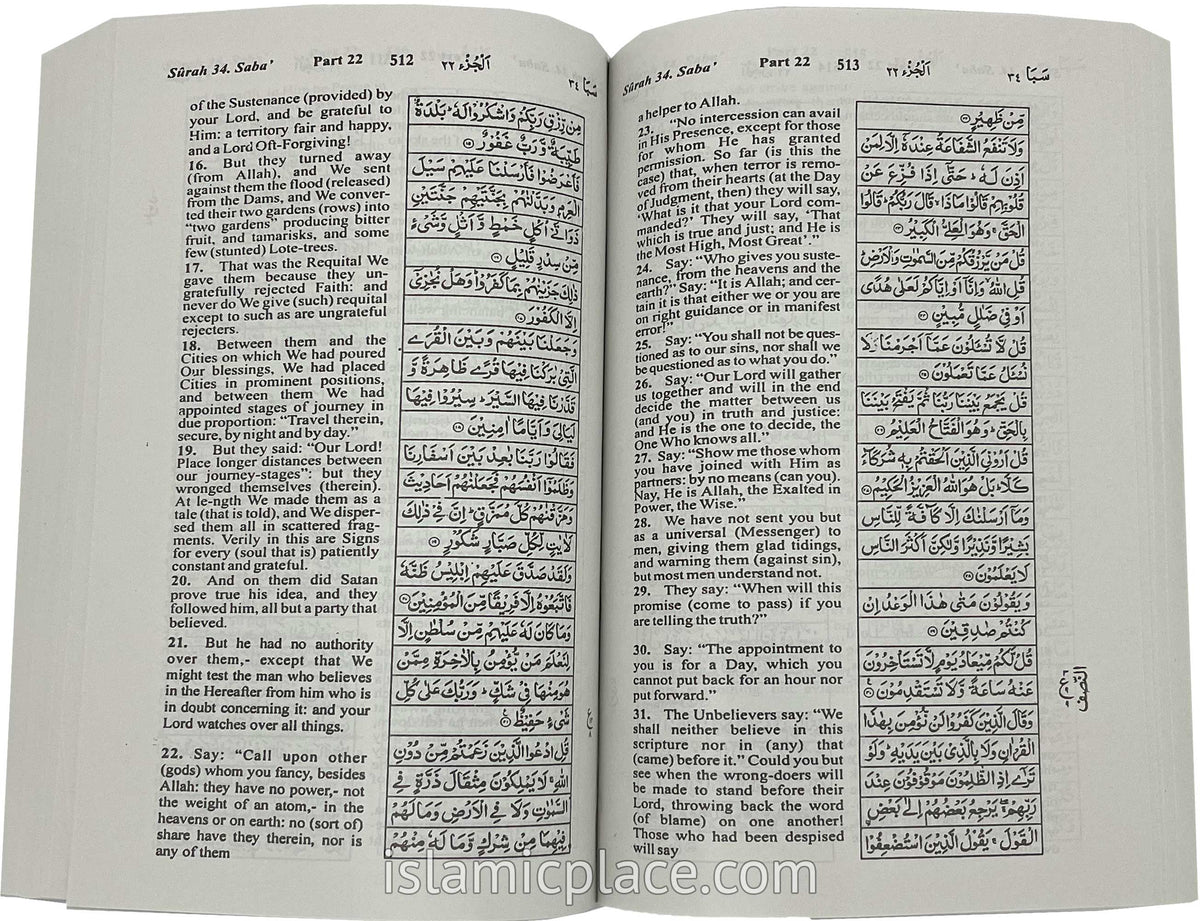 Sûrah 34. Saba’ Part 22 512 اَلْجُزْء ٢٢ سَبَا ٣٤
of the Sustenance (provided) by
your Lord, and be grateful to
Him: a territory fair and happy,
and a Lord Oft-Forgiving!
16. But they turned away
(from Allah), and We sent
against them the flood (released)
from the Dams, and We conver-
ted their two gardens (rows) into
“two gardens” producing bitter
fruit, and tamarisks, and some
few (stunted) Lote-trees.
17. That was the Requital We
gave them because they un-
gratefully rejected Faith: and
never do We give (such) requital
except to such as are ungrateful
rejecters.
18. Between them and the
Cities on which We had poured
Our blessings, We had placed
Cities in prominent positions,
and between them We had
appointed stages of journey in
due proportion: “Travel therein,
secure, by night and by day.”
19. But they said: “Our Lord!
Place longer distances between
our journey-stages”: but they
wronged themselves (therein).
At le-ngth We made them as a
tale (that is told), and We disper-
sed them all in scattered frag-
ments. Verily in this are Signs
for every (soul that is) patiently
constant and grateful.
20. And on them did Satan
prove true his idea, and they
followed him, all but a party that
believed.
21. But he had no authority
over them,- except that We
might test the man who believes
in the Hereafter from him who is
in doubt concerning it: and your
Lord watches over all things.
22. Say: “Call upon other
(gods) whom you fancy, besides
Allah: they have no power,- not
the weight of an atom,- in the
heavens or on earth: no (sort of)
share have they therein, nor is
any of them
مِنْ رِّزْقِ رَبِّكُمْ وَاشْكُرُوْا لَهٗ ؕ بَلْدَةٌ
طَيِّبَةٌ وَّرَبٌّ غَفُوْرٌ ﴿١٥﴾
فَاَعْرَضُوْا فَاَرْسَلْنَا عَلَيْهِمْ سَيْلَ
الْعَرِمِ وَبَدَّلْنٰهُمْ بِجَنَّتَيْهِمْ جَنَّتَيْنِ
ذَوَاتَىْ اُكُلٍ خَمْطٍ وَّاَثْلٍ وَّشَىْءٍ
مِّنْ سِدْرٍ قَلِيْلٍ ﴿١٦﴾
ذٰلِكَ جَزَيْنٰهُمْ بِمَا كَفَرُوْا ؕ وَهَلْ نُجٰزِىْۤ
اِلَّا الْكَفُوْرَ ﴿١٧﴾
وَجَعَلْنَا بَيْنَهُمْ وَبَيْنَ الْقُرَى
الَّتِىْ بٰرَكْنَا فِيْهَا قُرًى ظَاهِرَةً وَّ
قَدَّرْنَا فِيْهَا السَّيْرَ ؕ سِيْرُوْا فِيْهَا
لَيَالِىَ وَاَيَّامًا اٰمِنِيْنَ ﴿١٨﴾
فَقَالُوْا رَبَّنَا بٰعِدْ بَيْنَ اَسْفَارِنَا
وَظَلَمُوْۤا اَنْفُسَهُمْ فَجَعَلْنٰهُمْ اَحَادِيْثَ
وَمَزَّقْنٰهُمْ كُلَّ مُمَزَّقٍ ؕ اِنَّ فِىْ ذٰلِكَ
لَاٰيٰتٍ لِّكُلِّ صَبَّارٍ شَكُوْرٍ ﴿١٩﴾
وَلَقَدْ صَدَّقَ عَلَيْهِمْ اِبْلِيْسُ ظَنَّهٗ
فَاتَّبَعُوْهُ اِلَّا فَرِيْقًا مِّنَ الْمُؤْمِنِيْنَ ﴿٢٠﴾
وَمَا كَانَ لَهٗ عَلَيْهِمْ مِّنْ سُلْطٰنٍ اِلَّا
لِنَعْلَمَ مَنْ يُّؤْمِنُ بِالْاٰخِرَةِ مِمَّنْ
هُوَ مِنْهَا فِىْ شَكٍّ ؕ وَرَبُّكَ عَلٰى كُلِّ
شَىْءٍ حَفِيْظٌ ﴿٢١﴾
قُلِ ادْعُوا الَّذِيْنَ زَعَمْتُمْ مِّنْ دُوْنِ
اللّٰهِ ۚ لَا يَمْلِكُوْنَ مِثْقَالَ ذَرَّةٍ فِى
السَّمٰوٰتِ وَلَا فِى الْاَرْضِ وَمَا لَهُمْ
فِيْهِمَا مِنْ شِرْكٍ وَّمَا لَهٗ مِنْهُمْ
Sûrah 34. Saba’ Part 22 513 اَلْجُزْء ٢٢ سَبَا ٣٤
a helper to Allah.
23. “No intercession can avail
in His Presence, except for those
for whom He has granted
permission. So far (is this the
case) that, when terror is remo-
ved from their hearts (at the Day
of Judgment, then) they will say,
‘What is it that your Lord com-
manded?’ They will say, ‘That
which is true and just; and He is
the Most High, Most Great’.”
24. Say: “Who gives you suste-
nance, from the heavens and the
earth?” Say: “It is Allah; and cer-
tain it is that either we or you are
on right guidance or in manifest
error!”
25. Say: “You shall not be ques-
tioned as to our sins, nor shall we
be questioned as to what you do.”
26. Say: “Our Lord will gather
us together and will in the end
decide the matter between us
(and you) in truth and justice:
and He is the one to decide, the
One Who knows all.”
27. Say: “Show me those whom
you have joined with Him as
partners: by no means (can you).
Nay, He is Allah, the Exalted in
Power, the Wise.”
28. We have not sent you but
as a universal (Messenger) to
men, giving them glad tidings,
and warning them (against sin),
but most men understand not.
29. They say: “When will this
promise (come to pass) if you
are telling the truth?”
30. Say: “The appointment to
you is for a Day, which you
cannot put back for an hour nor
put forward.”
31. The Unbelievers say: “We
shall neither believe in this
scripture nor in (any) that
(came) before it.” Could you but
see when the wrong-doers will
be made to stand before their
Lord, throwing back the word
(of blame) on one another!
Those who had been despised
will say
مِّنْ ظَهِيْرٍ ﴿٢٢﴾
وَلَا تَنْفَعُ الشَّفَاعَةُ عِنْدَهٗۤ اِلَّا لِمَنْ
اَذِنَ لَهٗ ؕ حَتّٰۤى اِذَا فُزِّعَ عَنْ
قُلُوْبِهِمْ قَالُوْا مَاذَا ۙ قَالَ رَبُّكُمْ ؕ قَالُوا
الْحَقَّ ۚ وَهُوَ الْعَلِىُّ الْكَبِيْرُ ﴿٢٣﴾
قُلْ مَنْ يَّرْزُقُكُمْ مِّنَ السَّمٰوٰتِ وَالْاَرْضِ
قُلِ اللّٰهُ ۙ وَاِنَّاۤ اَوْ اِيَّاكُمْ لَعَلٰى هُدًى
اَوْ فِىْ ضَلٰلٍ مُّبِيْنٍ ﴿٢٤﴾
قُلْ لَّا تُسْئَلُوْنَ عَمَّاۤ اَجْرَمْنَا وَلَا
نُسْئَلُ عَمَّا تَعْمَلُوْنَ ﴿٢٥﴾
قُلْ يَجْمَعُ بَيْنَنَا رَبُّنَا ثُمَّ يَفْتَحُ بَيْنَنَا
بِالْحَقِّ ؕ وَهُوَ الْفَتَّاحُ الْعَلِيْمُ ﴿٢٦﴾
قُلْ اَرُوْنِىَ الَّذِيْنَ اَلْحَقْتُمْ بِهٖ شُرَكَآءَ
كَلَّا ؕ بَلْ هُوَ اللّٰهُ الْعَزِيْزُ الْحَكِيْمُ ﴿٢٧﴾
وَمَاۤ اَرْسَلْنٰكَ اِلَّا كَآفَّةً لِّلنَّاسِ
بَشِيْرًا وَّنَذِيْرًا وَّلٰكِنَّ اَكْثَرَ النَّاسِ
لَا يَعْلَمُوْنَ ﴿٢٨﴾
وَيَقُوْلُوْنَ مَتٰى هٰذَا الْوَعْدُ اِنْ
كُنْتُمْ صٰدِقِيْنَ ﴿٢٩﴾
قُلْ لَّكُمْ مِّيْعَادُ يَوْمٍ لَّا تَسْتَاْخِرُوْنَ
عَنْهُ سَاعَةً وَّلَا تَسْتَقْدِمُوْنَ ﴿٣٠﴾
وَقَالَ الَّذِيْنَ كَفَرُوْا لَنْ نُّؤْمِنَ بِهٰذَا
الْقُرْاٰنِ وَلَا بِالَّذِىْ بَيْنَ يَدَيْهِ ؕ وَلَوْ
تَرٰۤى اِذِ الظّٰلِمُوْنَ مَوْقُوْفُوْنَ عِنْدَ
رَبِّهِمْ ۖۚ يَرْجِعُ بَعْضُهُمْ اِلٰى بَعْضِ
الْقَوْلَ ۚ يَقُوْلُ الَّذِيْنَ اسْتُضْعِفُوْا
النِّصْف
islamicplace.com